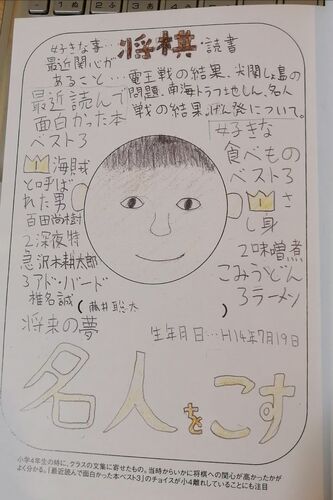 好きな事…将棋 読書
最近関心が
あること…電王戦の結果、尖閣しょ島の
問題、南海トラフ地しん、名人
戦の結果。げん発について。
最近読んで
面白かった本
ベスト3
1 海賊
と呼ば
れた男
百田尚樹
2深夜特
急 沢木耕太郎
3アド・バード
椎名誠
好きな
食べもの
ベスト3
1 さ
し身
2味噌煮
こみうどん
3ラーメン
(藤井聡太)
将来の夢
生年月日…H14年7月19日
名人をこす
小学4年生の時に、クラスの文集に寄せたもの。当時からいかに将棋への関心が高かったかが
よく分かる。「最近読んで面白かった本ベスト3」のチョイスが小4離れしていることにも注目